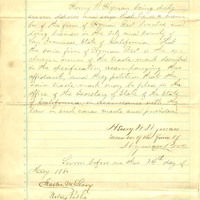 Henry W. Hyman being duly
sworn deposes and says that he is a mem-
ber of the firm of Hyman
doing business in the city and county of
San Francisco State of California. That
the said firm of Hyman
owners of the trade mark described
in the declaration accompanying this
affidavit and they petition that the
said trade mark may be filed in the
office of the Secretary of State of the State
of California in accordance with the
law in such cases made and provided
Henry W. Hyman
member of the firm of
Hyman
Sworn before me this 26th day of
May 188